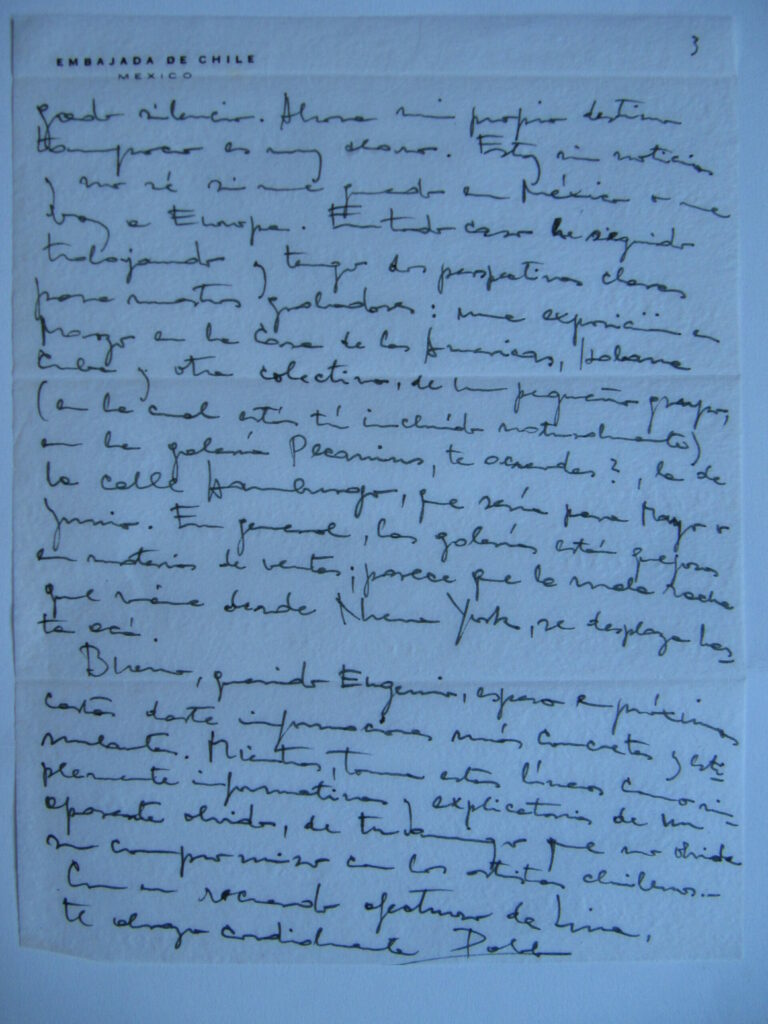 3
EMBAJADA DE CHILE
MEXICO
gado silencio. Ahora mi propio destino
tampoco es muy claro. Estoy sin noticias
y no sé si me quedo en México o me
voy a Europa. En todo caso he seguido
trabajando y tengo dos perspectivas claras
para nuestros grabadores: una exposición en
Marzo en la Casa de las Américas, Habana
Cuba y otra colectiva, de un pequeño grupo,
(en la cual estás tú incluído naturalmente)
en la galería Pecanins, te acuerdas?, la de
la calle Hamburgo, que sería para Mayo o
Junio. En general, las galerías están quejosas
en materia de ventas; parece que la mala racha
que viene desde Nueva York, se desplaza has
ta acá.
Bueno, querido Eugenio, espero en próximas
cartas darte informaciones más concretas y esti
mulantes. Mientras, toma estas líneas como sim-
plemente informativas y explicatorias de un
aparente olvido, de tu amigo que no olvida
su compromiso con los artistas chilenos.-
Con un recuerdo afectuoso de
te abraza cordialmente